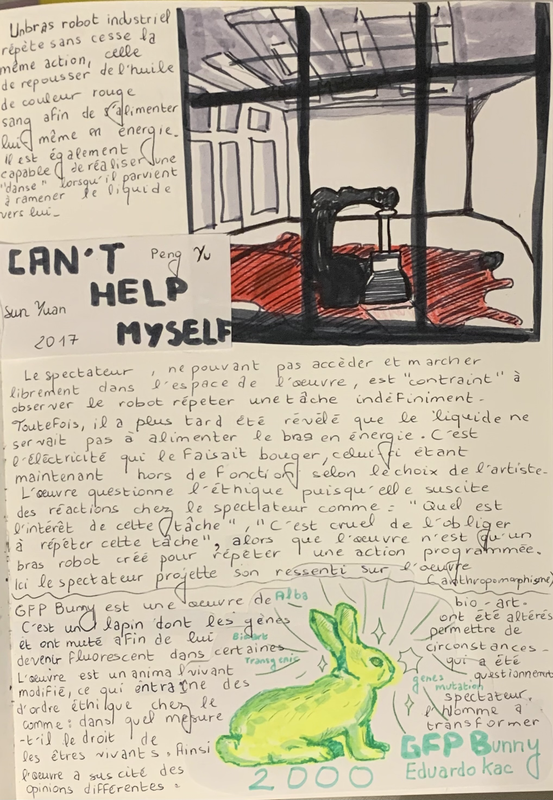 Un bras robot industriel
répète sans cesse la
même action, celle
de repousser de l'huile
de couleur rouge
sang afin de s'alimenter
lui même en énergie.
Il est également
capable de réaliser une
"danse" lorsqu'il parvient
à ramener le liquide
vers lui.
CAN'T
Peng Yu
HELP
Sun Yuan
MYSELF
2017
Le spectateur, ne pouvant pas accèder et marcher
librement dans l'espace de l'œuvre, est "contraint" à
observer le robot répeter une tâche indéfiniment.
Toutefois, il a plus tard été révélé que le liquide ne
servait pas à alimenter le bras en énergie. C'est
l'éléctricité qui le faisait bouger, celui ci étant
maintenant hors de fonction selon le choix de l'artiste.
L'œuvre questionne l'éthique puisqu'elle suscite
des réactions chez le spectateur comme : "Quel est
l'intérêt de cette tâche", "C'est cruel de l'obliger
à répéter cette tâche", alors que l'œuvre n'est qu'un
bras robot créé pour répéter une action programmée.
Ici le spectateur projette son ressenti sur l'œuvre
(anthropomorphisme)
GFP Bunny est une œuvre de bio-art.
C'est un lapin dont les gènes ont été altérés
et ont muté afin de lui permettre de
devenir fluorescent dans certaines circonstances.
L'œuvre est un animal vivant qui a été
modifié, ce qui entraîne des questionnements
d'ordre éthique chez le spectateur.
comme : dans quel mesure l'Homme a
-t'il le droit de transformer
les êtres vivants. Ainsi
l'œuvre à suscité des
opinions différentes.
Alba
BioArt
Transgenic
genes
mutation
GFP Bunny
Eduardo Kac
2000